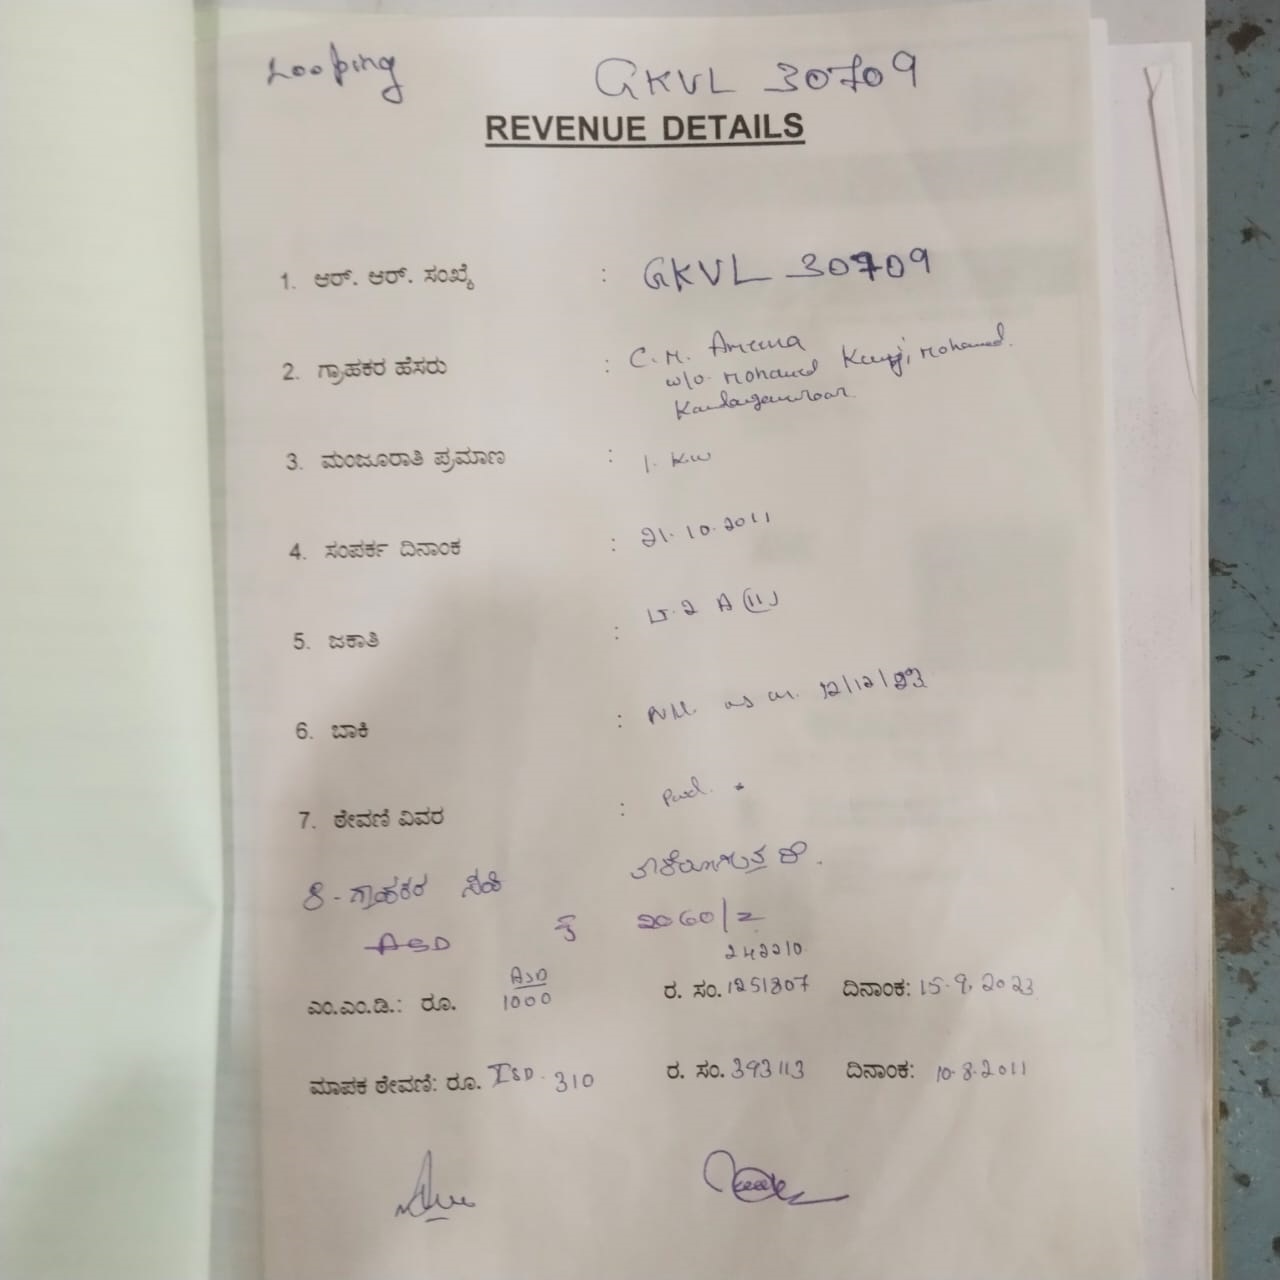 Looping GKVL 30709
REVENUE DETAILS
1. ಆರ್. ಆರ್. ಸಂಖ್ಯೆ : GKVL 30709
2. ಗ್ರಾಹಕರ ಹೆಸರು : C.M. Ameena
w/o. Mohamed Kunji, Mohamed.
3. ಮಂಜೂರಾತಿ ಪ್ರಮಾಣ : 1. KW
4. ಸಂಪರ್ಕ ದಿನಾಂಕ : 21.10.2011
5. ಜಕಾತಿ : LT.2 A (II)
6. ಬಾಕಿ : Nil as on. 12/12/23
7. ಠೇವಣಿ ವಿವರ : Paid.
8 - ಗ್ರಾಹಕರ ಸಹಿ
ASD 2060/=
242210
ಎಂ.ಎಂ.ಡಿ.: ರೂ. ASD 1000 ರ. ಸಂ. 1251807 ದಿನಾಂಕ: 15.9.2023
ಮಾಪಕ ಠೇವಣಿ: ರೂ. ISD. 310 ರ. ಸಂ. 393113 ದಿನಾಂಕ: 10.8.2011